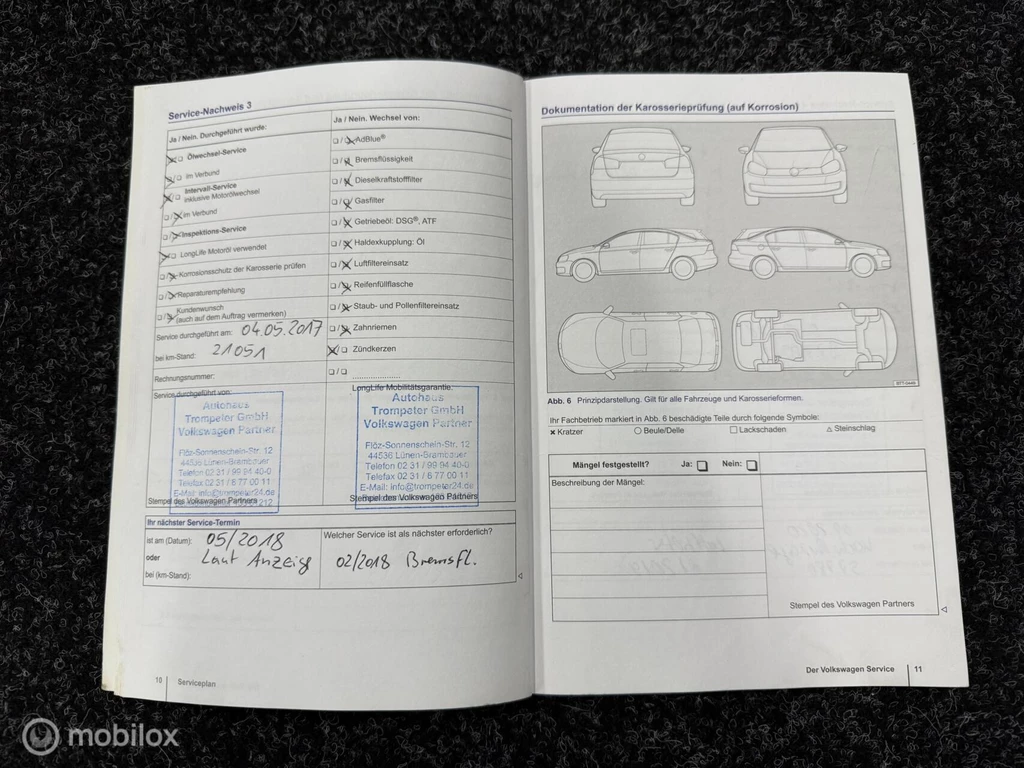 Service-Nachweis 3
Ja / Nein. Durchgeführt wurde:
Ölwechsel-Service
im Verbund
Intervall-Service
inklusive Motorölwechsel
im Verbund
Inspektions-Service
LongLife Motoröl verwendet
Korrosionsschutz der Karosserie prüfen
Reparaturempfehlung
Kundenwunsch
(auch auf dem Auftrag vermerken)
Service durchgeführt am: 04.05.2017
bei km-Stand: 21051
Rechnungsnummer:
Service durchgeführt von:
Autohaus
Trompeter GmbH
Volkswagen Partner
Flöz-Sonnenschein-Str. 12
44536 Lünen-Brambauer
Telefon 02 31 / 99 94 40-0
Telefax 02 31 / 6 77 00 11
E-Mail: info@trompeter24.de
Stempel des Volkswagen Partners
Ja / Nein. Wechsel von:
AdBlue®
Bremsflüssigkeit
Dieselkraftstofffilter
Gasfilter
Getriebeöl: DSG®, ATF
Haldexkupplung: Öl
Luftfiltereinsatz
Reifenfüllflasche
Staub- und Pollenfiltereinsatz
Zahnriemen
Zündkerzen
LongLife Mobilitätsgarantie:
Autohaus
Trompeter GmbH
Volkswagen Partner
Flöz-Sonnenschein-Str. 12
44536 Lünen-Brambauer
Telefon 02 31 / 99 94 40-0
Telefax 02 31 / 6 77 00 11
E-Mail: info@trompeter24.de
Stempel des Volkswagen Partners
Ihr nächster Service-Termin
ist am (Datum): 05/2018
oder Laut Anzeig
bei (km-Stand):
Welcher Service ist als nächster erforderlich?
02/2018 Bremsfl.
10 Serviceplan
Dokumentation der Karosserieprüfung (auf Korrosion)
Abb. 6 Prinzipdarstellung. Gilt für alle Fahrzeuge und Karosserieformen.
Ihr Fachbetrieb markiert in Abb. 6 beschädigte Teile durch folgende Symbole:
Kratzer Beule/Delle Lackschaden Steinschlag
Mängel festgestellt? Ja: Nein:
Beschreibung der Mängel:
Stempel des Volkswagen Partners
Der Volkswagen Service 11
mobilox